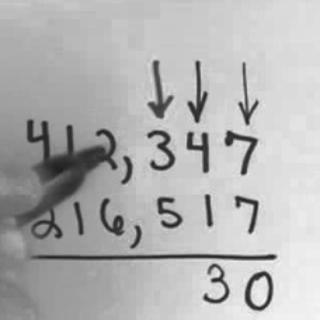 412,347
216,517
30